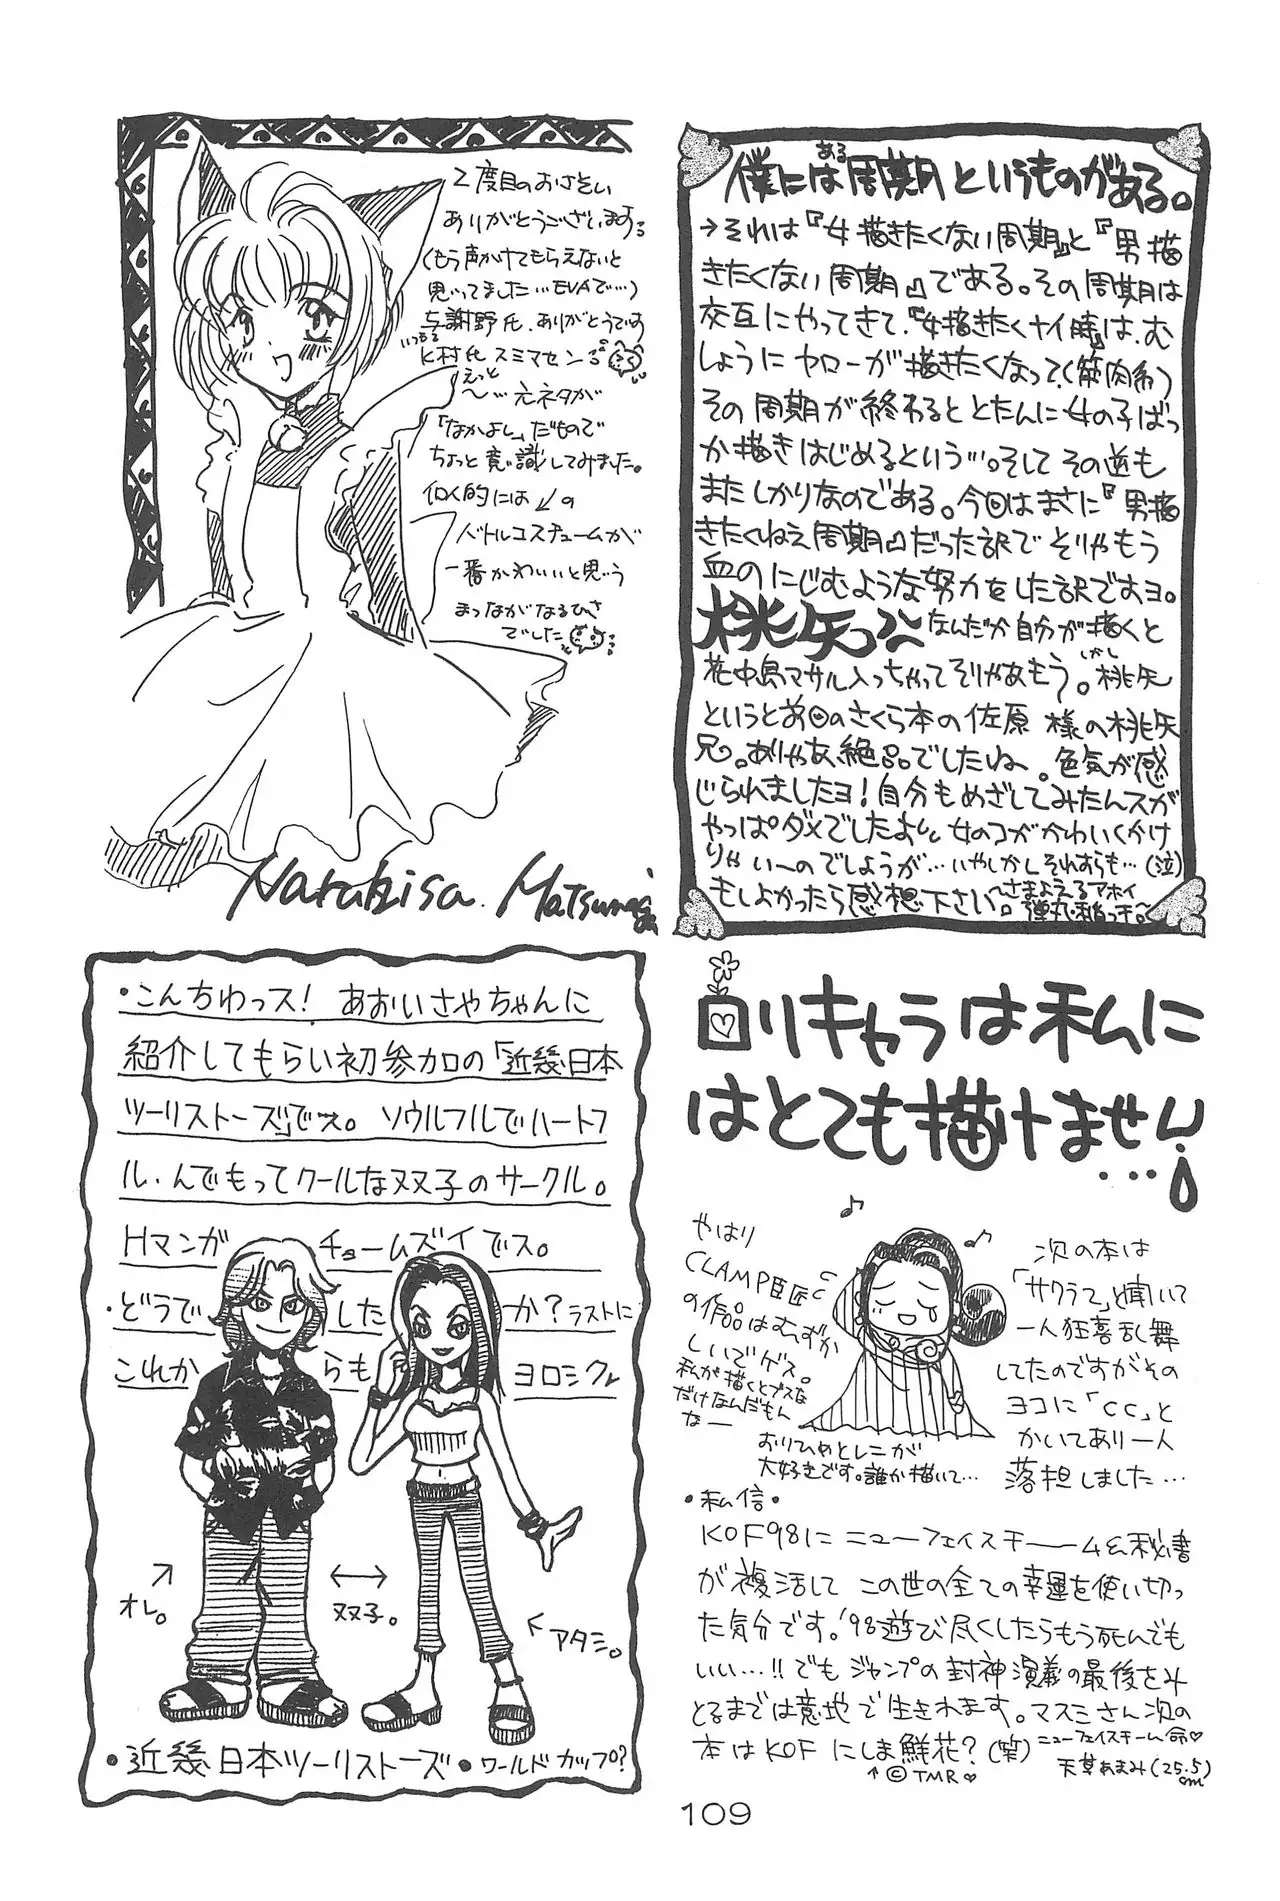 2度目のおさそい
ありがとうございます
(もう声かけてもらえないと
思ってました…EVAで…)
与謝野氏、ありがとうです
いつも
ヒ村氏スミマセン
えっと
〜…元ネタが
「なかよし」だもので
ちょっと意識してみました。
個人的には↙の
バトルコスチュームが
一番かわいいと思う
まつながなるひさ
でした
Naruhisa Matsunaga
僕には周期というものがある。
ある
→それは『女描きたくない周期』と『男描
きたくない周期』である。その周期は
交互にやってきて、『女描きたくナイ時』は、む
しょうにヤローが描きたくなって、(筋肉系)
その周期が終わるととたんに女の子ばっ
か描きはじめるという…。そしてその逆も
またしかりなのである。今回はまさに『男描
きたくねえ周期』だった訳でそりゃもう
血のにじむような努力をした訳ですヨ。
桃矢っ なんだか自分が描くと
花中島マサル入っちゃってそりゃあもう。しかし桃矢
というと前回のさくら本の佐原様の桃矢
兄。ありゃあ絶品でしたね。色気が感
じられましたヨ!自分もめざしてみたんスが
やっぱダメでしたよ。女のコがかわいくかけ
りゃい〜のでしょうが…いやしかしそれすらも…(泣)
もしよかったら感想下さい。さまよえるアホイ
弾丸・稲っチ。
・こんちわっス! あおいさやちゃんに
紹介してもらい初参加の「近幾日本
ツーリストーズ」でス。ソウルフルでハートフ
ル、んでもってクールな双子のサークル。
Hマンガ チョームズイでス。
・どうで した か?ラストに
これか らも ヨロシクル
↗
オレ。
↔
双子。
←アタシ。
・近幾日本ツーリストーズ・ワールドカップ?
ロリキャラは私に
はとても描けません…
やはり
CLAMP巨匠
の作品はむずか
しいでゲス。
私が描くとブスな
だけなんだもん
なー
おりひめとレニが
大好きです。誰か描いて…
次の本は
「サクラ大」と聞いて
一人狂喜乱舞
してたのですがその
ヨコに「CC」と
かいてあり一人
落担しました…
・私信・
KOF98にニューフェイスチーム&秘書
が複活してこの世の全ての幸運を使い切っ
た気分です。'98遊び尽くしたらもう死んでも
いい…!!でもジャンプの封神演義の最後をみ
とるまでは意地で生きれます。マスミさん次の
本はKOFにしま鮮花?(笑)
↑©TMR♡
ニューフェイスチーム命♡
天草あまみ(25.5cm)
109